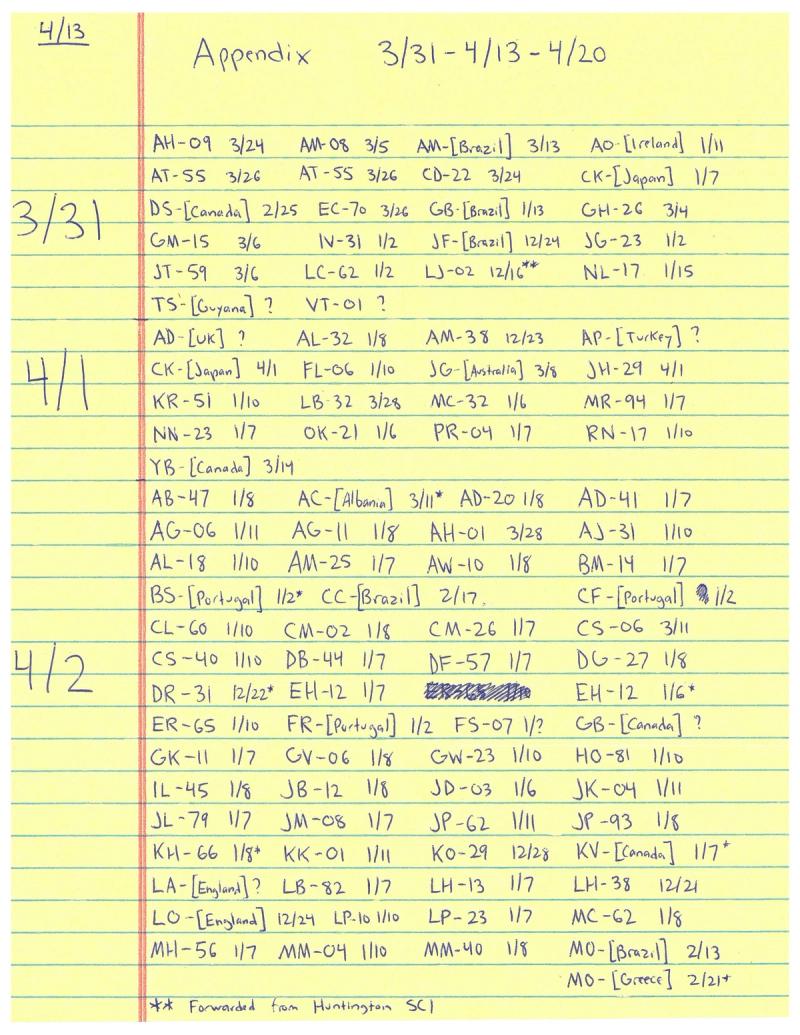 4/13
Appendix 3/31 - 4/13 - 4/20
AH-09 3/24 AM-08 3/5 AM-[Brazil] 3/13 AO-[Ireland] 1/11
AT-55 3/26 AT-55 3/26 CD-22 3/24 CK-[Japan] 1/7
3/31 DS-[Canada] 2/25 EC-70 3/26 GB-[Brazil] 1/13 GH-26 3/4
GM-15 3/6 IV-31 1/2 JF-[Brazil] 12/24 JG-23 1/2
JT-59 3/6 LC-62 1/2 LJ-02 12/16** NL-17 1/15
TS-[Guyana] ? VT-01 ?
AD-[UK] ? AL-32 1/8 AM-38 12/23 AP-[Turkey] ?
4/1 CK-[Japan] 4/1 FL-06 1/10 JG-[Australia] 3/8 JH-29 4/1
KR-51 1/10 LB-32 3/28 MC-32 1/6 MR-94 1/7
NN-23 1/7 OK-21 1/6 PR-04 1/7 RN-17 1/10
YB-[Canada] 3/14
AB-47 1/8 AC-[Albania] 3/11* AD-20 1/8 AD-41 1/7
AG-06 1/11 AG-11 1/8 AH-01 3/28 AJ-31 1/10
AL-18 1/10 AM-25 1/7 AW-10 1/8 BM-14 1/7
BS-[Portugal] 1/2* CC-[Brazil] 2/17. CF-[Portugal] 1/2
CL-60 1/10 CM-02 1/8 CM-26 1/7 CS-06 3/11
4/2 CS-40 1/10 DB-44 1/7 DF-57 1/7 DG-27 1/8
DR-31 12/22* EH-12 1/7 EH-12 1/6*
ER-65 1/10 FR-[Portugal] 1/2 FS-07 1/? GB-[Canada] ?
GK-11 1/7 GV-06 1/8 GW-23 1/10 HO-81 1/10
IL-45 1/8 JB-12 1/8 JD-03 1/6 JK-04 1/11
JL-79 1/7 JM-08 1/7 JP-62 1/11 JP-93 1/8
KH-66 1/8* KK-01 1/11 KO-29 12/28 KV-[Canada] 1/7*
LA-[England] ? LB-82 1/7 LH-13 1/7 LH-38 12/21
LO-[England] 12/24 LP-10 1/10 LP-23 1/7 MC-62 1/8
MH-56 1/7 MM-04 1/10 MM-40 1/8 MO-[Brazil] 2/13
MO-[Greece] 2/21+
** Forwarded from Huntington SCI